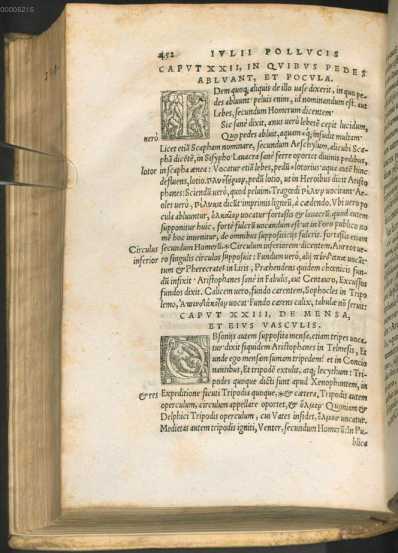 00006215
452 IVLII POLLVCIS
CAPVT XXII, IN QVIBVS PEDES
ABLVANT, ET POCVLA.
IDem quoq; aliquis de illo uase dixerit, in quo pe-
des abluunt: peluis enim, id nominandum est. aut
Lebes, secundum Homerum dicentem
Sic sanè dixit, anus uerò lebetē cepit lucidum,
nerò Quo pedes abluit, aquam &q; infudit multam
Licet etiā Scapham nominare, secundum Aeschylum, alicubi Sca-
phā dicētē, in Sisypho Lauacra sanè ferre oportet diuinis pedibus,
lotor in scapha ænea: Vocatur etiā lebes, pedū lotorius aquæ autē hinc
defluens, lotio. pedū lotio, ut in Heroibus dicit Aristo
phanes: Sciendū uerò, quod peluim Tragœdi uocitant Ae-
oles uerò, dicūt imprimis ligneū, à cædendo. Vbi uero po
cula abluuntur, uocatur fortassis & lauacrū. quod autem
supponitur huic, fortè fulcrū uocandum est ut in foro publico no
mē hoc inuenitur, de omnibus suppositiciis fulcris. fortassis etiam
Circulus secundum Homerū. * Circulum inferiorem dicentem. Aureos ue-
inferior ro singulis circulos supposuit: Fundum uerò, alij uocāt-
tum & Pherecrates in Liris, Præhendens quidem chœnicis fun-
dū infixit. Aristophanes sanè in Fabulis, aut Centauro, Excussus
fundos dixit. Calicem uero, fundo carentem, Sophocles in Tripo
lemo, uocat: Fundo carens calix, tabulæ nō seruit:
CAPVT XXIII, DE MENSA,
ET EIVS VASCVLIS.
OBsonijs autem supposita mensa, etiam tripes uoca-
tur dixit siquidem Aristophanes in Telmesis, Et
unde ego mensam sumam tripedem? et in Concio
nantibus, Et tripodē extulit, atq; lecythum: Tri-
podes quoque dicti sunt apud Xenophontem, in
& res Expeditione sicuti Tripodis quoque. * & cætera, Tripodis autem
operculum, circulum appellare oportet, & Quoniam &
Delphici Tripodis operculum, cui Vates insidet, uocatur.
Medietas autem tripodis igniti, Venter, secundum Homerū: In Pu-
blica